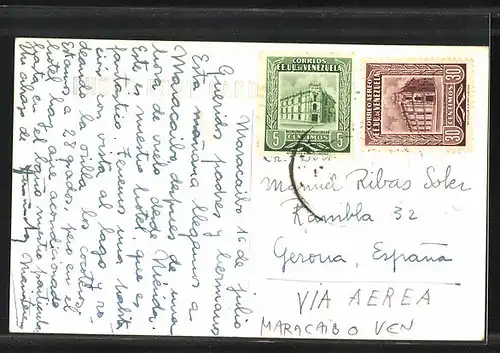 Maracaibo 16 de julio
Queridos padres y hermano
Esta mañana llegamos a
Maracaibo después de una
hora de vuelo desde Mérida.
Este es nuestro hotel, que es
fantástico. Tenemos una habita
ción con vista al lago y ro
deando la orilla los cocoteros.
Estamos a 28 grados, pero en el
hotel hay aire acondicionado
hasta en el
Un abrazo de
CORREOS
EE.UU. DE VENEZUELA
5 CENTIMOS 5
CORREOS
EE.UU. DE VENEZUELA
30 CENTIMOS 30
Manuel Ribas Soler
Rambla 32
Gerona, España
VIA AEREA
MARACAIBO VEN